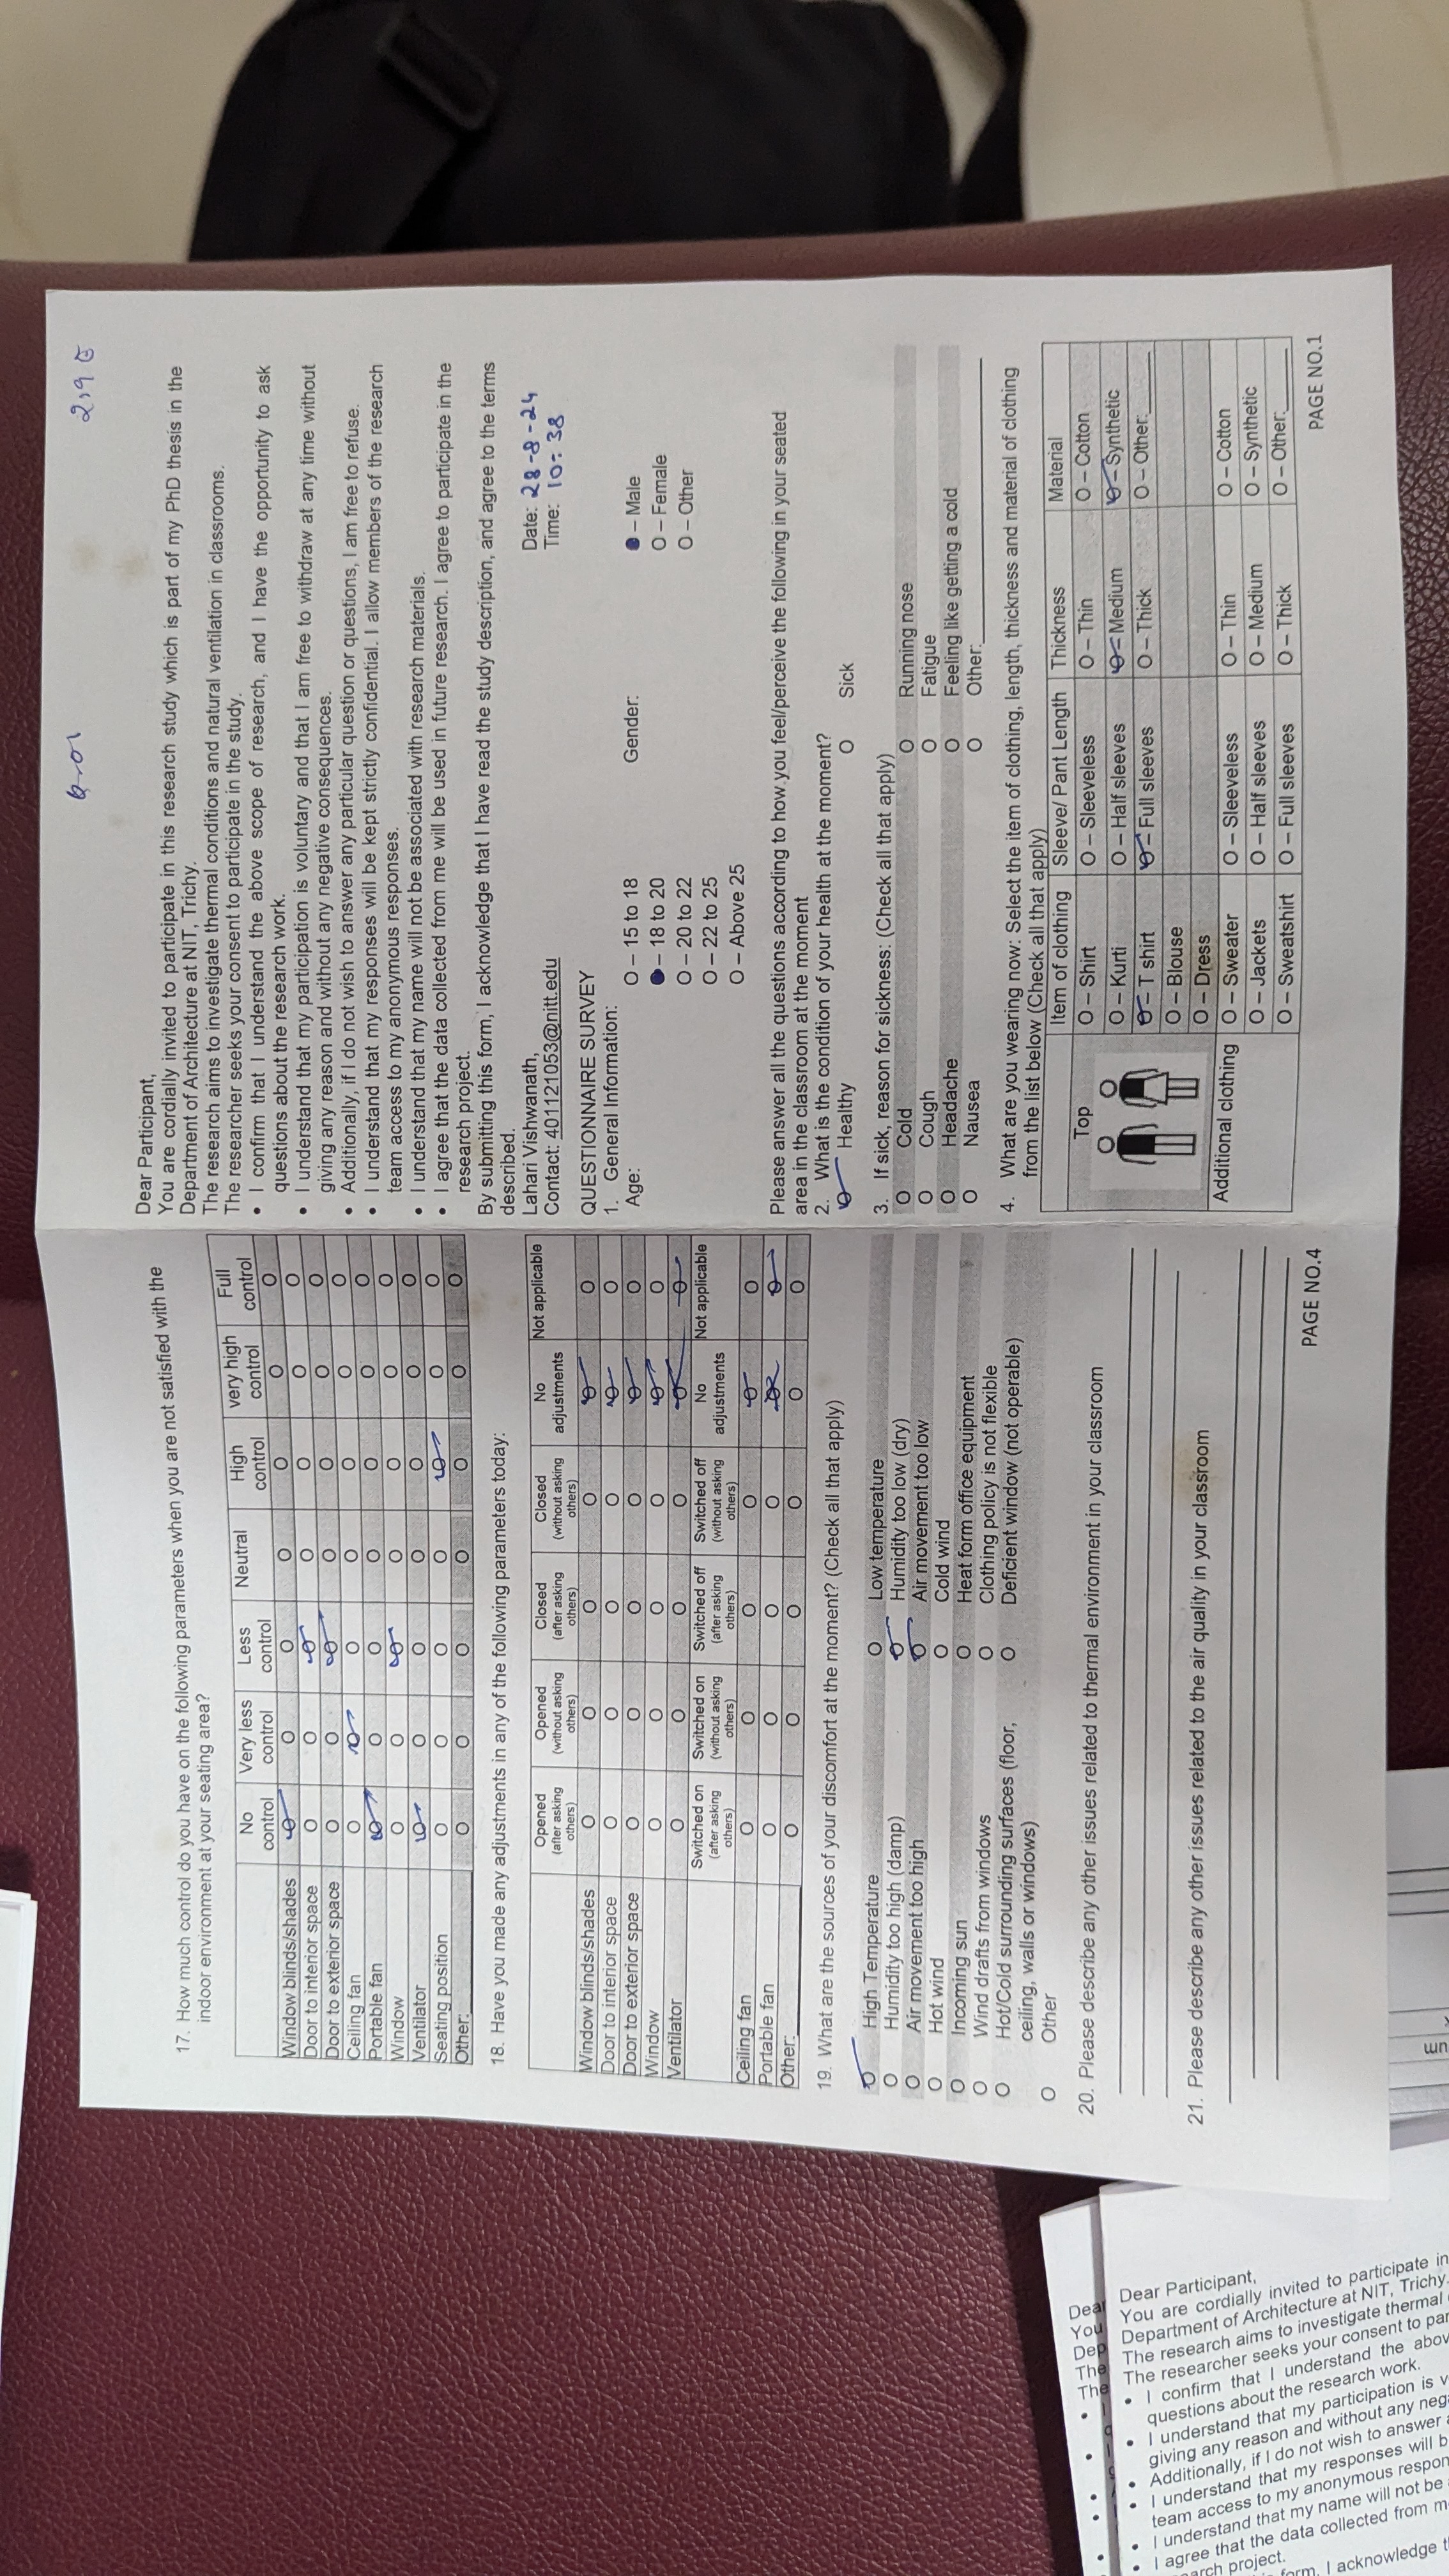 17. How much control do you have on the following parameters when you are not satisfied with the
indoor environment at your seating area?
No control Very less control Less control Neutral High control very high control Full control
Window blinds/shades O O O O O O O
Door to interior space O O O O O O O
Door to exterior space O O O O O O O
Ceiling fan O O O O O O O
Portable fan O O O O O O O
Window O O O O O O O
Ventilator O O O O O O O
Seating position O O O O O O O
Other: O O O O O O O
18. Have you made any adjustments in any of the following parameters today:
Opened (after asking others) Opened (without asking others) Closed (after asking others) Closed (without asking others) No adjustments Not applicable
Window blinds/shades O O O O O O
Door to interior space O O O O O O
Door to exterior space O O O O O O
Window O O O O O O
Ventilator O O O O O O
Switched on (after asking others) Switched on (without asking others) Switched off (after asking others) Switched off (without asking others) No adjustments Not applicable
Ceiling fan O O O O O O
Portable fan O O O O O O
Other: O O O O O O
19. What are the sources of your discomfort at the moment? (Check all that apply)
O High Temperature O Low temperature
O Humidity too high (damp) O Humidity too low (dry)
O Air movement too high O Air movement too low
O Hot wind O Cold wind
O Incoming sun O Heat form office equipment
O Wind drafts from windows O Clothing policy is not flexible
O Hot/Cold surrounding surfaces (floor, O Deficient window (not operable)
ceiling, walls or windows)
O Other
20. Please describe any other issues related to thermal environment in your classroom
21. Please describe any other issues related to the air quality in your classroom
PAGE NO.4
Dear Participant,
You are cordially invited to participate in this research study which is part of my PhD thesis in the
Department of Architecture at NIT, Trichy.
The research aims to investigate thermal conditions and natural ventilation in classrooms.
The researcher seeks your consent to participate in the study.
• I confirm that I understand the above scope of research, and I have the opportunity to ask
questions about the research work.
• I understand that my participation is voluntary and that I am free to withdraw at any time without
giving any reason and without any negative consequences.
• Additionally, if I do not wish to answer any particular question or questions, I am free to refuse.
• I understand that my responses will be kept strictly confidential. I allow members of the research
team access to my anonymous responses.
• I understand that my name will not be associated with research materials.
• I agree that the data collected from me will be used in future research. I agree to participate in the
research project.
By submitting this form, I acknowledge that I have read the study description, and agree to the terms
described.
Lahari Vishwanath, Date: 28-8-24
Contact: 401121053@nitt.edu Time: 10:38
QUESTIONNAIRE SURVEY
1. General Information:
Age: O – 15 to 18 Gender: – Male
– 18 to 20 O – Female
O – 20 to 22 O – Other
O – 22 to 25
O – Above 25
Please answer all the questions according to how you feel/perceive the following in your seated
area in the classroom at the moment
2. What is the condition of your health at the moment?
O Healthy O Sick
3. If sick, reason for sickness: (Check all that apply)
O Cold O Running nose
O Cough O Fatigue
O Headache O Feeling like getting a cold
O Nausea O Other:
4. What are you wearing now: Select the item of clothing, length, thickness and material of clothing
from the list below (Check all that apply)
Item of clothing Sleeve/ Pant Length Thickness Material
Top O – Shirt O – Sleeveless O – Thin O – Cotton
O – Kurti O – Half sleeves O – Medium O – Synthetic
O – T shirt O – Full sleeves O – Thick O – Other:
O – Blouse
O – Dress
Additional clothing O – Sweater O – Sleeveless O – Thin O – Cotton
O – Jackets O – Half sleeves O – Medium O – Synthetic
O – Sweatshirt O – Full sleeves O – Thick O – Other:
PAGE NO.1
Dear Participant,
You are cordially invited to participate in
Department of Architecture at NIT, Trichy.
The research aims to investigate thermal
The researcher seeks your consent to
• I confirm that I understand the
questions about the research work.
• I understand that my participation is
giving any reason and without any
• Additionally, if I do not wish to answer
• I understand that my responses will
team access to my anonymous
• I understand that my name will not be
• I agree that the data collected from
project.
form, I acknowledge